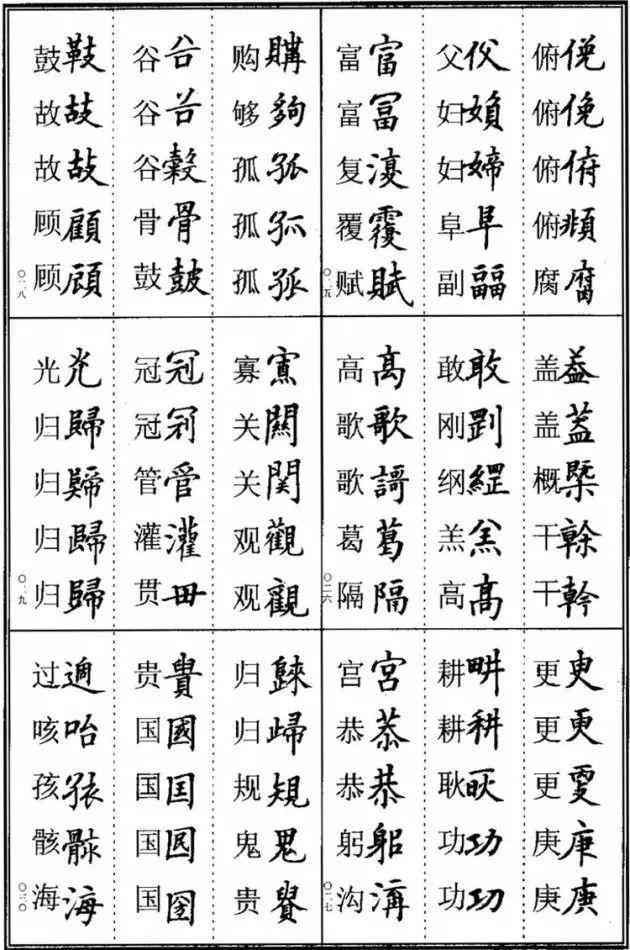 俯俛俯俛俯俯俯頫腐腐
父㕮妇妇媍妇婦阜阜副副
富富富冨复復覆覆赋賦
〇二五
盖盖盖蓋概槩干榦干幹
敢敢刚纲羔羔高髙
高高歌歌歌謌葛葛隔隔
〇二六
更更更更更庚庚庚庚
耕畊耕耕耿耿功功功功
宫宮恭恭恭恭躬躬沟溝
〇二七
购購够夠孤孤孤孤孤孤
谷谷谷谷谷穀骨骨鼓皷
鼓鼓故故故故顾顧顾顧
〇二八
寡寡关關关関观觀观觀
冠冠冠冠管管灌灌贯毌
光光归歸归归归歸
〇二九
归归规規鬼鬼贵貴
贵貴国國国囯国国
过過咳咍孩孩骸骸海海
〇三〇